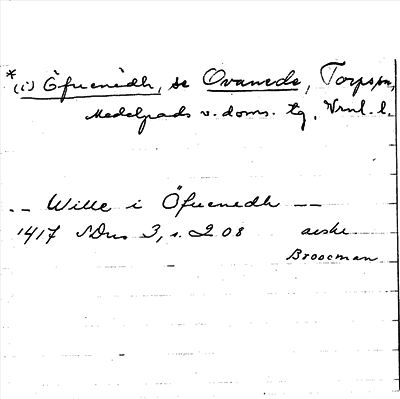 * (i) Öfuenedh, se Ovanede, Torps sn,
Medelpads v. doms. tg, Vrnl. l.
-- Wille i Öfuenedh --
1417 SDns 3, s. 208 avskr.
Broocman